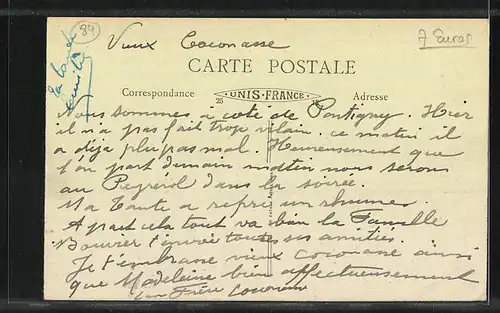 Vieux Coconasse
39
7 Euros
CARTE POSTALE
Correspondance
UNIS-FRANCE
Adresse
25
la bande
Nous sommes a coté de Pontigny. Hier
il n'a pas fait trop vilain. ce matin il
a deja plu pas mal. Heureusement que
l'on part demain matin nous serons
au Peyrerol dans la soirée.
Ma Tante a repris un rhume.
A part cela tout va bien la Famille
Bouvier t'envoie toutes ses amitiés.
Je t'embrasse vieux coconasse ainsi
que Madeleine bien affectueusement
ton Frère